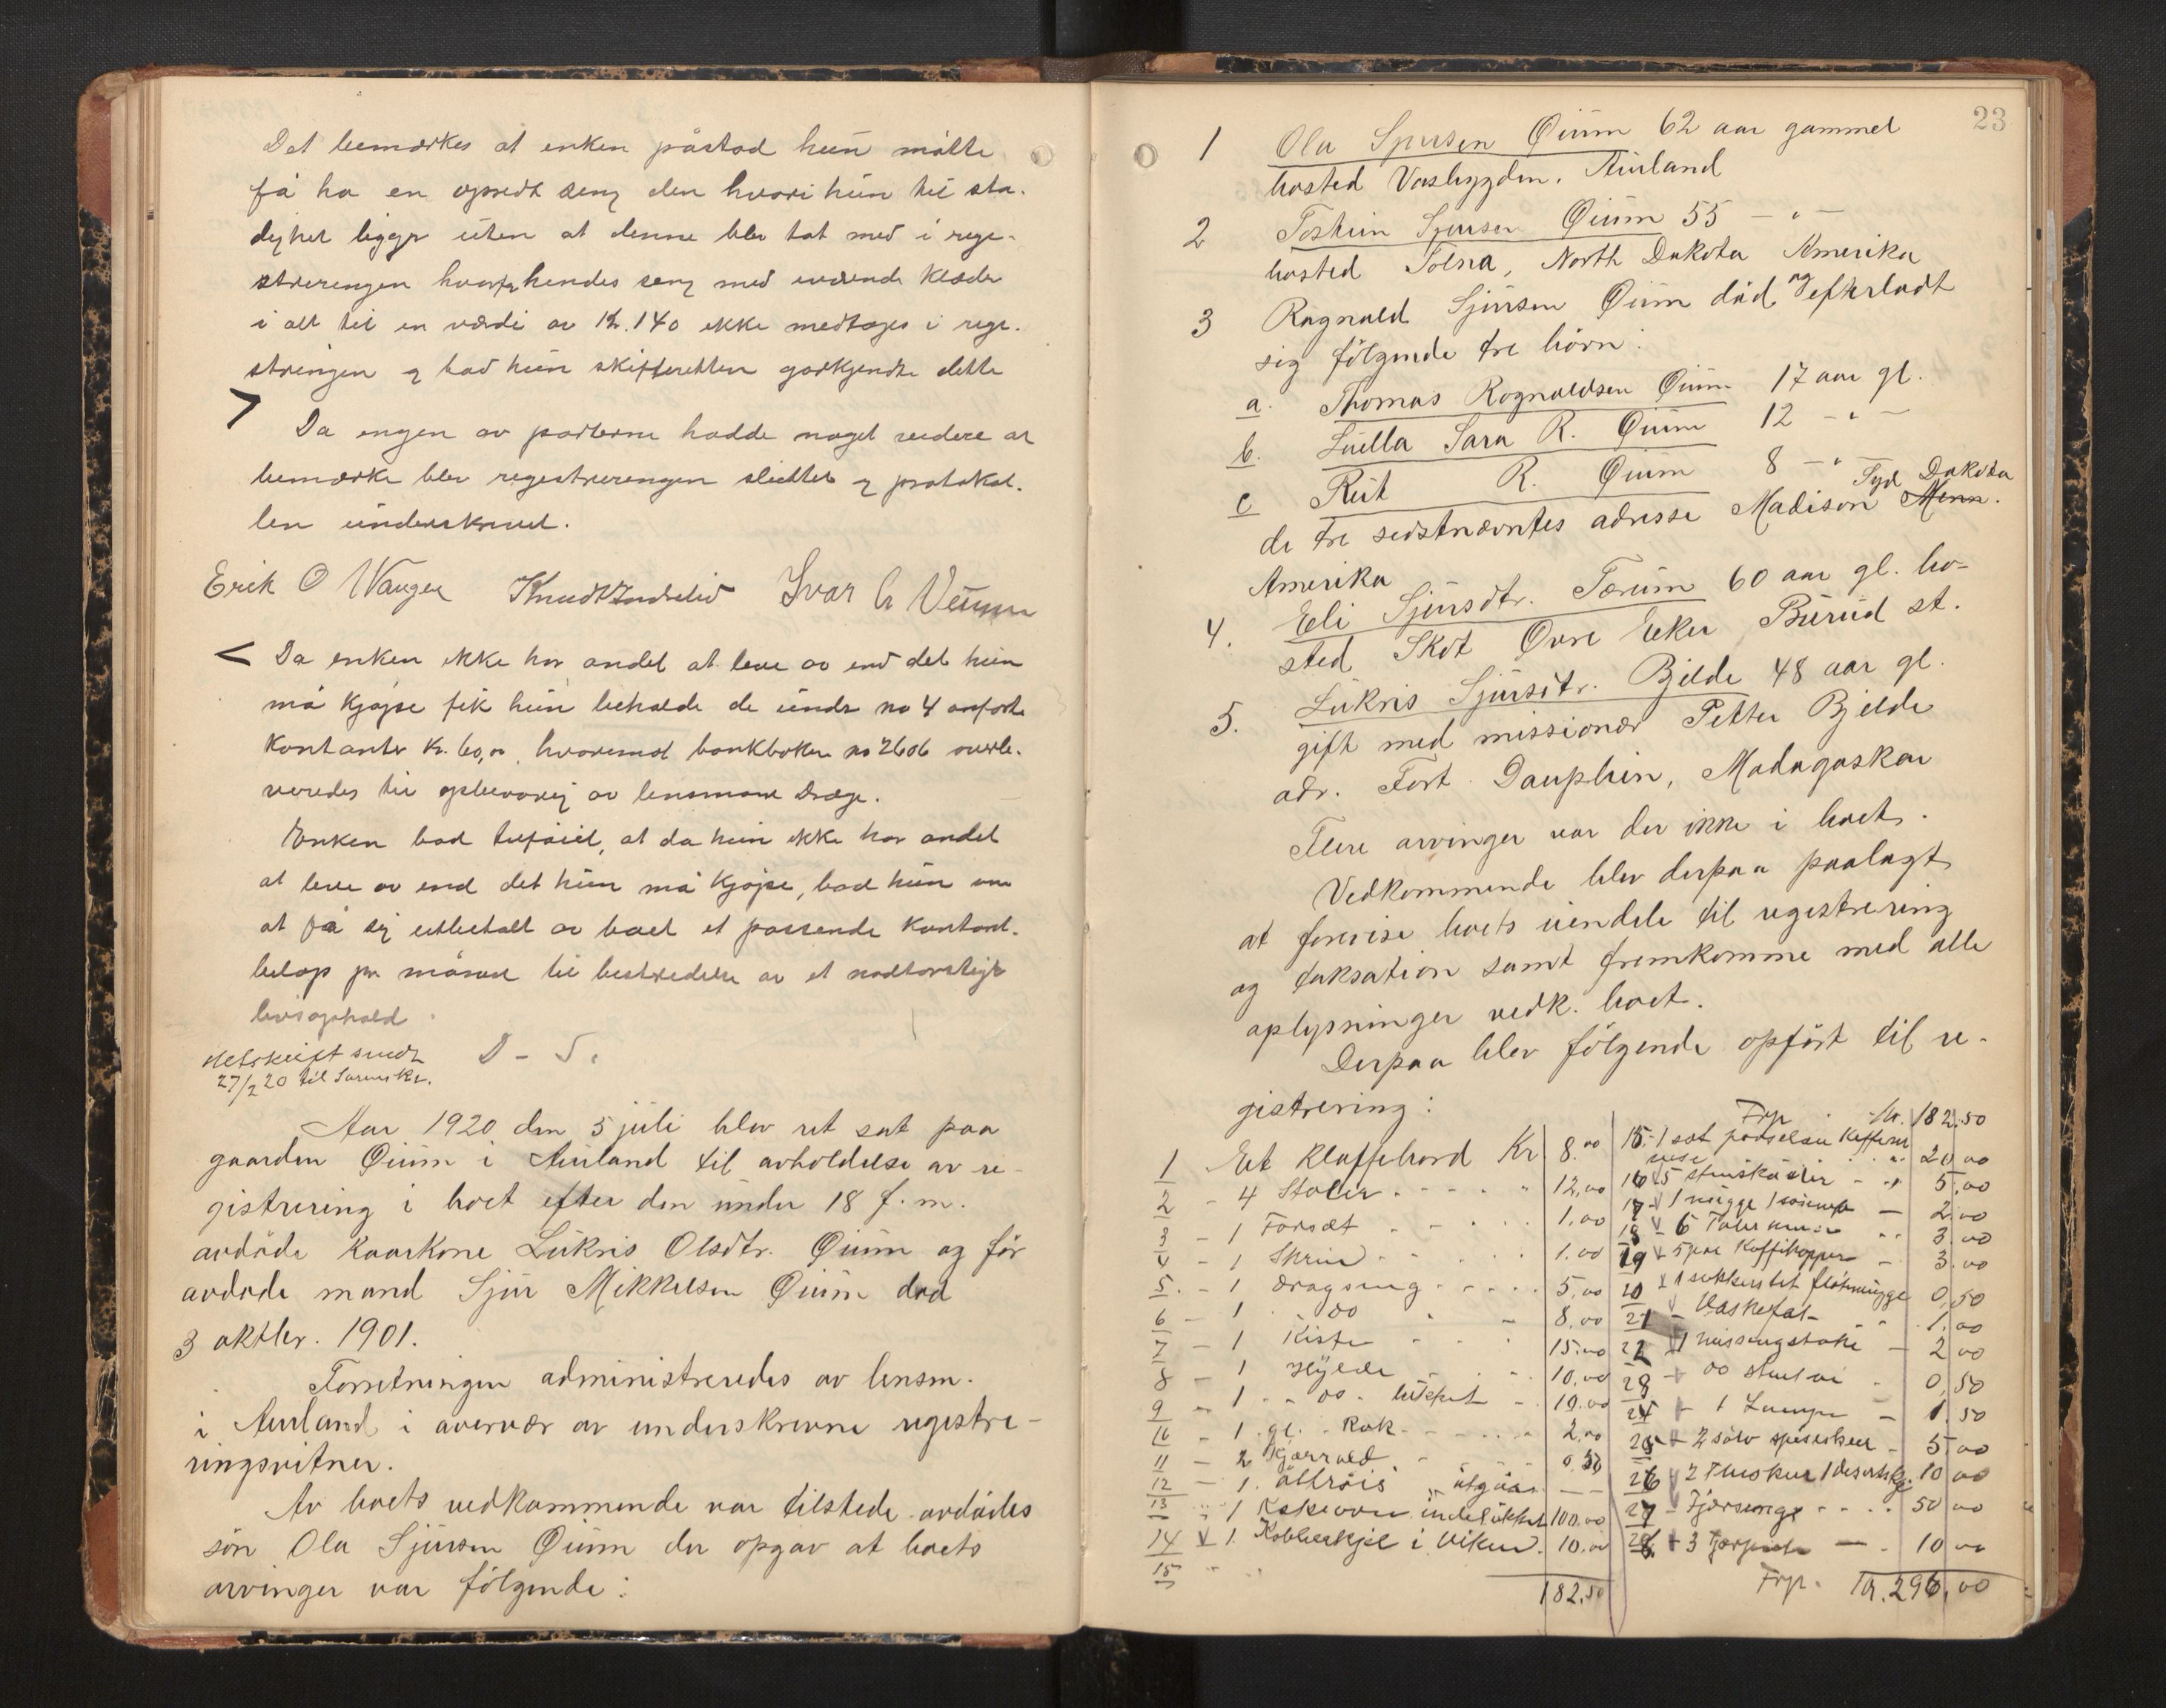 Det bemærkes at enken påstod hun måtte
få ha en opredt seng den hvori hun til sta-
dighet ligger uten at denne blev tat med i rege-
streringen hvorfor hendes seng med værende klæder
i alt til en værdi av kr. 140 ikke medtages i rege-
streringen og bad hun skifteretten godkjendte dette
>
Da ingen av parterne hadde noget videre at
bemærke blev regestreringen sluttet og protokol-
len underskrevet.
Erik O Wangen Knudt Ivar
< Da enken ikke har andet at leve av end det hun
må kjøpe fik hun beholde de under no 4 anførte
kontanter kr. 60,00, hvorimot bankboken no 2606 overle-
veredes til opbevaring av lensmann
Enken bad tilføiet, at da hun ikke har andet
at leve av end det hun må kjøpe, bad hun om
at få sig utbetalt av boet et passende kontant-
beløp pr måned til bestridelse av et nødtørstigt
livsophold
Utskrift sendt
27/2 20 til Sorenskr.
D - S.
Aar 1920 den 5 juli blev ret sat paa
gaarden Øium i Aurland til avholdelse av re-
gistrering i boet efter den under 18 f. m.
avdöde kaarkone Lükris Olsdtr. Øium og för
avdøde mand Sjur Mikkelsen Øium død
3 oktbr. 1901.
Forretningen administreredes av lensm.
i Aurland i overvær av underskrevne registre-
ringsvitner.
Av boets vedkommende var tilstede avdödes
sön Ola Sjursen Øium der opgav at boets
arvinger var följgende:
23
1 Ola Sjursen Øium 62 aar gammel
bosted Vasbygden, Aurland
2 Tostein Sjursen Øium 55 — " —
bosted Tolna, North Dakota Amerika
3 Ragnald Sjursen Øium död og efterladt
sig fölgende tre börn:
a. Thomas Ragnaldsen Øium 17 aar gl.
b. Luella Sara R. Øium 12 — " —
c Rut R. Øium 8 — " —
Syd Dakota
de tre sidstnævntes adresse Madison Minn.
Amerika
4. Eli Sjursdtr. Tærum 60 aar gl. bo-
sted Skot Øvre Eker Burud st.
5. Lükris Sjursdtr. Bjelde 48 aar gl.
gift med missionær Petter Bjelde
adr. Fort Dauphin, Madagaskar
Flere arvinger var der ikke i boet.
Vedkommende blev derpaa paalagt
at forevise boets eiendele til registrering
og taksation samt fremkomme med alle
oplysninger vedk. boet.
Derpaa blev fölgende opfört til re-
gistrering:
1 Et Klaffebord Kr 8.00
2 - 4 Stoler 12,00
3 - 1 Forsæt 1,00
4 - 1 Skrin 1.00
5. - 1 Dragseng 5,00
6 - 1 do 8,00
7 - 1 Kiste 15.00
8 - 1 Hylde 10,00
9 - 1 - do - 10.00
10 - 1 gl. Rok 2,00
11 - 2 Kjørrald 0.50
12 - 1 utgaar — —
13 - 1 Kakeovn 100.00
14 v 1. Kobberkjel i Viken 10,00
15
182,50
Frp. Kr. 182.50
15 - 1 sæt Kaffe 20 00
16 v 5 5,00
17 - v 1 mugge 2.00
18 v 6 3.00
19 v 5 par Kaffikopper 3.00
20 v 1 flötemugge 0,50
21 v Vaskefat 1,00
22 v 1 messingstake 2 00
23 - v do 0,50
24 - v 1 Lampe 1.50
25 - v 2 sölv spiseskeer 5 00
26 v 2 Theskeer 1 desertskje. 10 00
27 - Fjærseng 50 00
28 v 3 10 00
Frp. Kr. 296.00